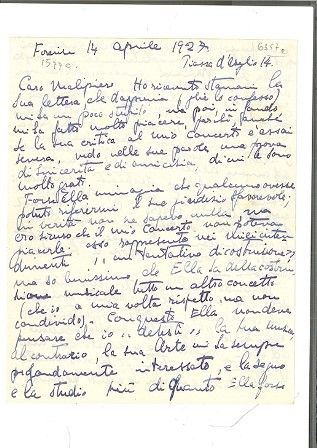 Firenze 14 aprile 1927
6357c
1599c
Piazza d'Azeglio 14.
Caro Malipiero Ho ricevuto stamani la
sua lettera che dapprima (glie lo confesso)
mi ha un poco stupito ma poi, in fondo
mi ha fatto molto piacere perché, anche
se la sua critica al mio concerto è assai
severa, vedo nelle sue parole una prova
di sincerità e di amicizia, di cui le sono
molto grato.
Forse Ella immagina che qualcuno avesse
potuto riferirmi il suo giudizio sfavorevole:
in verità non ne sapevo nulla ma
ero sicuro che il mio Concerto non poteva
piacerle: esso rappresenta nei miei inten-
dimenti "un tentativo di costruzione"
ma so benissimo che Ella ha della costru-
zione musicale tutto un altro concetto
(che io a mia volta rispetto, ma non
condivido). Con questo Ella non deve
pensare che io "detesti" la sua musica
al contrario, la sua Arte mi ha sempre
profondamente interessato, e la seguo
e la studio più di quanto Ella forse